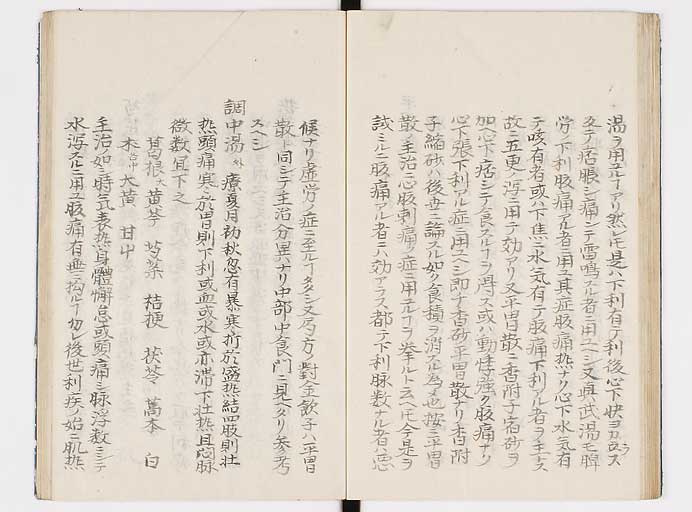 湯ヲ用ユルアリ然レ𪜈是ハ下利有テ利後心下快ヨカラス
久テ痞脹シ痛ンテ雷鳴スル者ニ用ユヘシ又真武湯モ脾
労ノ下利腹痛アル者ニ用ユ其症腹痛熱ナク心下水気有
テ咳有者或ハ下焦ニ水気有テ腹痛下利アル者ヲ主トス
故ニ五更ノ泻ニ用テ効アリ又平胃散ニ香附子宿砂ヲ
加心下痞シテ食スル ヲ得ス或ハ動悸強ク腹痛ナク
心下張下利アル症ニ用ユヘシ即チ香砂平胃散ナリ香附
子縮砂ハ後世ニ論スル如ク食積ヲ消スル為 也按ニ平胃
散ノ主治ニ心腹刺痛ノ症ニ用ユル ヲ挙ルト云ヘ𪜈今是ヲ
試ミルニ腹痛アル者ニハ効アラス都テ下利脉数ナル者ハ悪
候ナリ虚労ノ症ニ至ル タシ又局方ノ對金飲子ハ平胃
散ト同シテ主治分異ハナリ中部中食門ニ見ヘタリ参考
スヘシ
調中湯 外 療夏月初秋忽有暴寒折於盛熱結四肢則壮
熱頭痛寒 於胃則下利或血或水或赤滞下壮熱且悶脉
微数宜下之
葛根 黄芩 芍薬 桔梗 茯苓 藁本 白
木 大黄 甘艸
主治ノ如ク時気表熱身體懈怠或頭痛シ脉浮数ニシテ
水泻スルニ用ユ腹痛有無ニ拘ル 勿レ後世利疾ノ始ニ肌熱